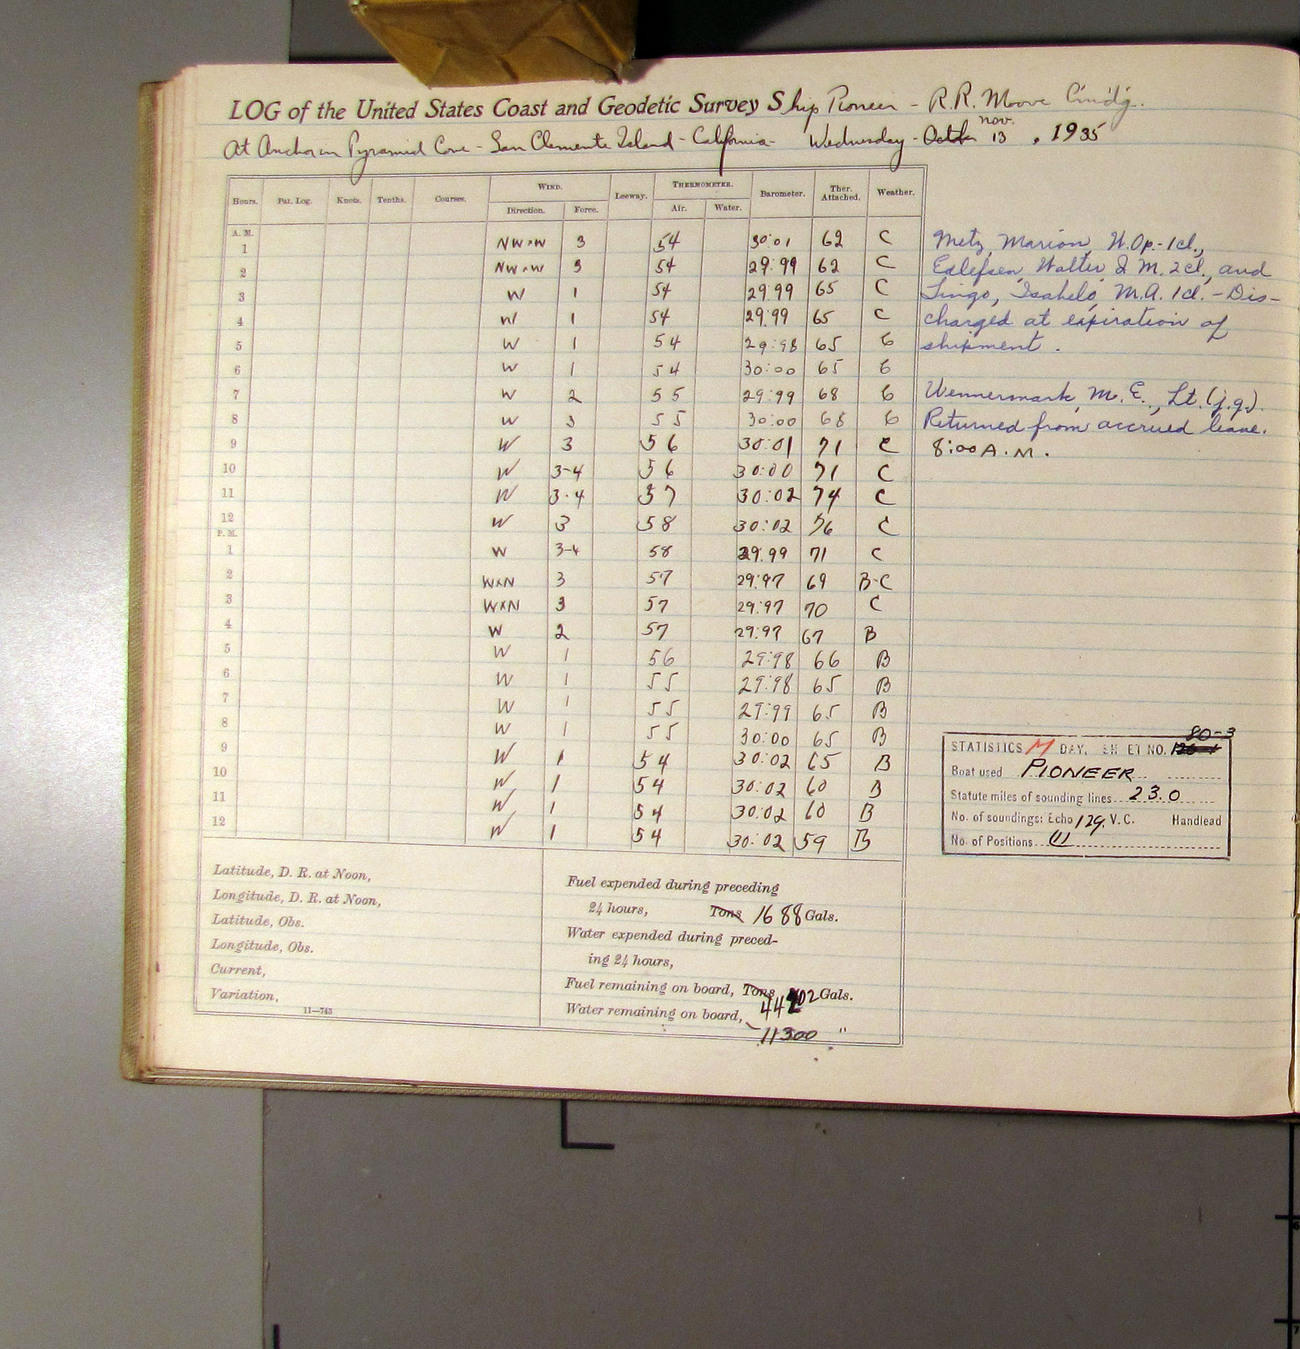 LOG of the United States Coast and Geodetic Survey Ship Pioneer - R.R. Moore Cmd'g.
At Anchor in Pyramid Cove - San Clemente Island - California - Wednesday - October nov. 13, 1935
Hours. Pat. Log. Knots. Tenths. Courses. WIND. Direction. Force. Leeway. THERMOMETER. Air. Water. Barometer. Ther. Attached. Weather.
A. M.
1 NW×W 3 54 30:01 62 C
2 NW×W 3 54 29:99 62 C
3 W 1 54 29:99 65 C
4 W 1 54 29:99 65 C
5 W 1 54 29:98 65 C
6 W 1 54 30:00 65 C
7 W 2 55 29:99 68 C
8 W 3 55 30:00 68 C
9 W 3 56 30:01 71 C
10 W 3-4 56 30:00 71 C
11 W 3-4 57 30:02 74 C
12 W 3 58 30:02 76 C
P. M.
1 W 3-4 58 29:99 71 C
2 W×N 3 57 29:97 69 B-C
3 W×N 3 57 29:97 70 C
4 W 2 57 29:97 67 B
5 W 1 56 29:98 66 B
6 W 1 55 29:98 65 B
7 W 1 55 29:99 65 B
8 W 1 55 30:00 65 B
9 W 1 54 30:02 65 B
10 W 1 54 30:02 60 B
11 W 1 54 30:02 60 B
12 W 1 54 30:02 59 B
Metz, Marion, W.Op.-1cl.,
Edlefsen, Walter Q.M. 2cl., and
Lingo, Isabelo, M.A. 1cl. - Dis-
charged at expiration of
shipment.
Wennermark, M. E., Lt. (j.g.).
Returned from accrued leave.
8:00 A.M.
80-3
STATISTICS M DAY, SHEET NO.
Boat used PIONEER
Statute miles of sounding lines 23.0
No. of soundings: Echo 129, V. C. Handlead
No. of Positions 111
Latitude, D. R. at Noon,
Longitude, D. R. at Noon,
Latitude, Obs.
Longitude, Obs.
Current,
Variation,
11—743
Fuel expended during preceding
24 hours, Tons 1688 Gals.
Water expended during preced-
ing 24 hours,
Fuel remaining on board, Tons 44202 Gals.
Water remaining on board, 11300 "